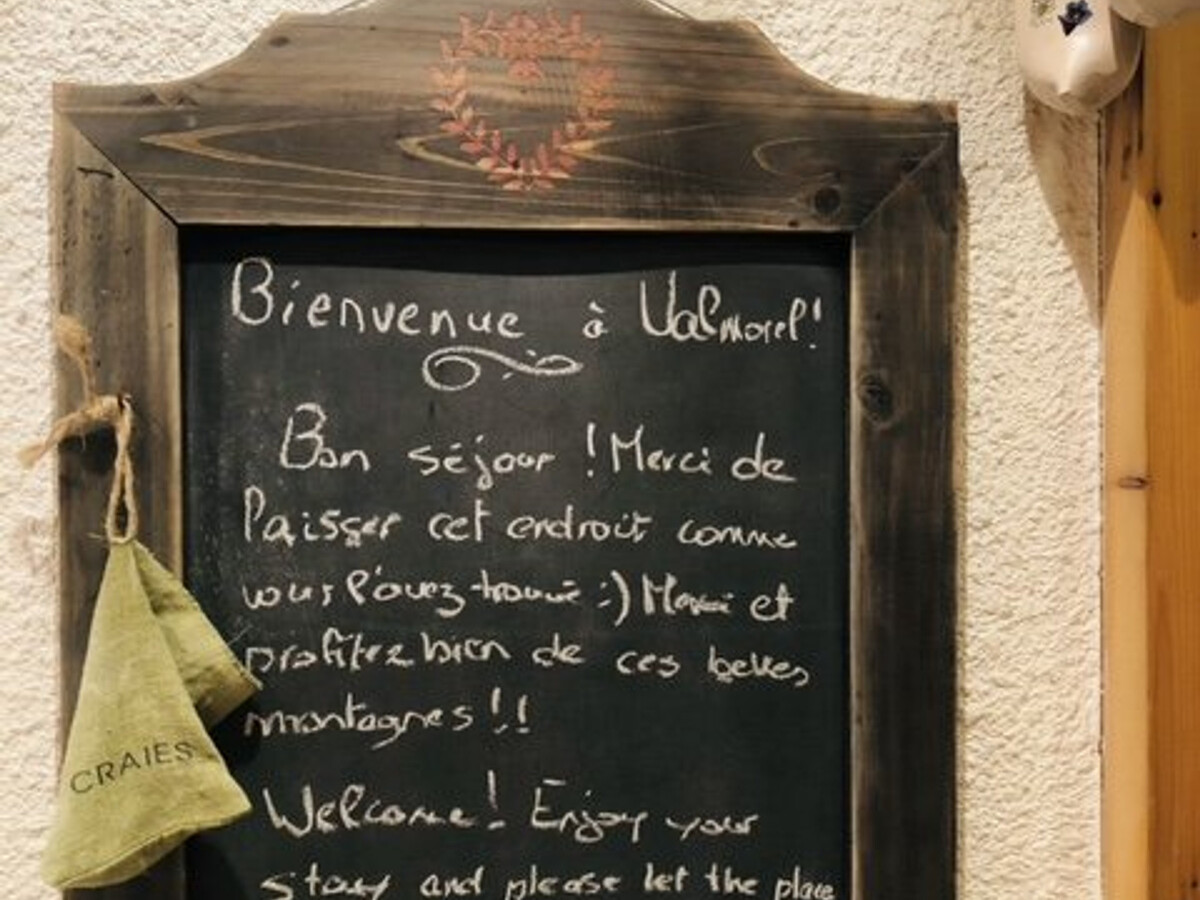 Bienvenue à Valmorel!
Bon séjour ! Merci de
laisser cet endroit comme
vous l'avez trouvé :) Merci et
profitez bien de ces belles
montagnes !!
CRAIES
Welcome! Enjoy your
stay and please let the place